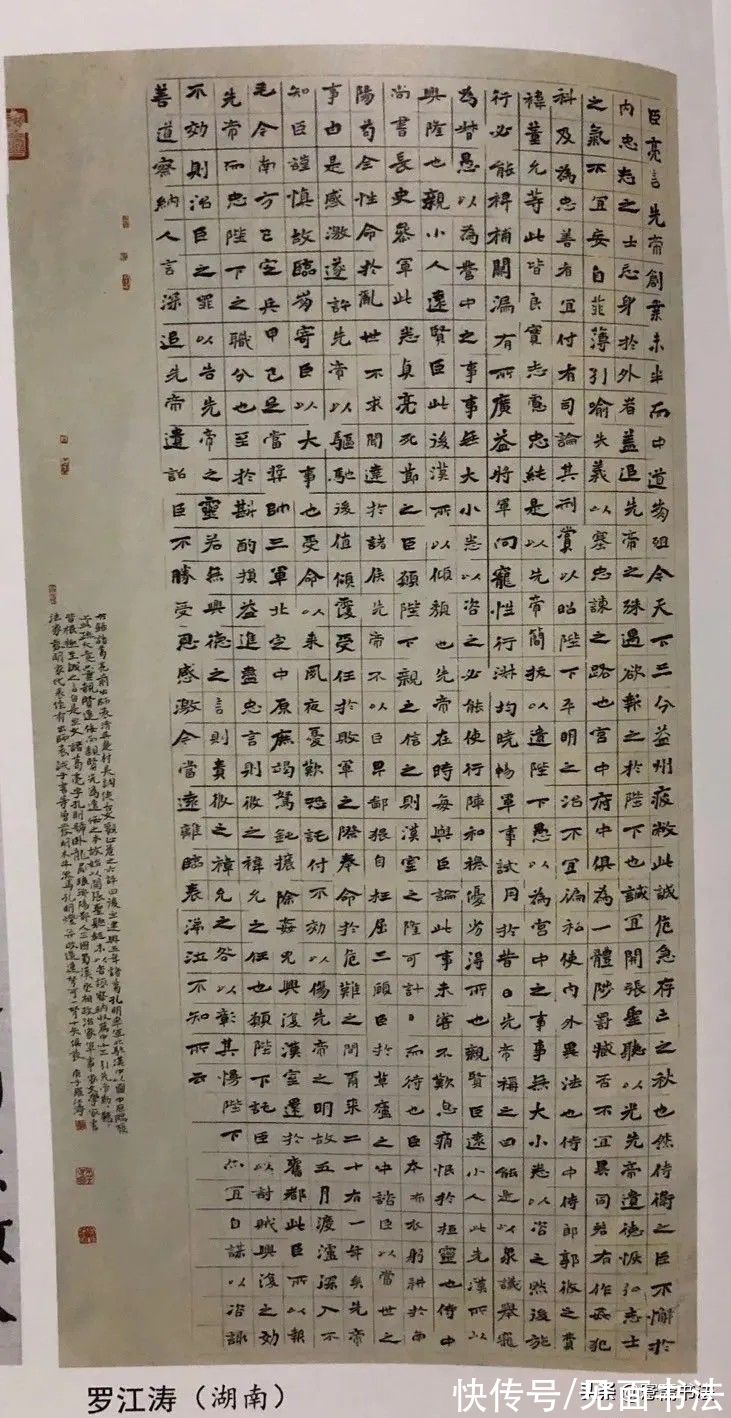 臣亮言先帝創業未半而中道崩殂今天下三分益州疲敝此誠危急存亡之秋也然侍衛之臣不懈於
内忠志之士忘身於外者蓋追先帝之殊遇欲報之於陛下也誠宜開張聖聽以光先帝遺德恢弘志士
之氣不宜妄自菲薄引喻失義以塞忠諫之路也宮中府中俱為一體陟罰臧否不宜異同若有作姦犯
科及為忠善者宜付有司論其刑賞以昭陛下平明之治不宜偏私使內外異法也侍中侍郎郭攸之費
禕董允等此皆良實志慮忠純是以先帝簡拔以遺陛下愚以為宮中之事事無大小悉以咨之然後施
行必能裨補闕漏有所廣益將軍向寵性行淑均曉暢軍事試用於昔日先帝稱之曰能是以眾議舉寵
為督愚以為營中之事事無大小悉以咨之必能使行陣和穆優劣得所也親賢臣遠小人此先漢所以
興隆也親小人遠賢臣此後漢所以傾頹也先帝在時每與臣論此事未嘗不歎息痛恨於桓靈也侍中
尚書長史參軍此悉貞亮死節之臣願陛下親之信之則漢室之隆可計日而待也臣本布衣躬耕於南
陽苟全性命於亂世不求聞達於諸侯先帝不以臣卑鄙猥自枉屈三顧臣於草廬之中諮臣以當世之
事由是感激遂許先帝以驅馳後值傾覆受任於敗軍之際奉命於危難之間爾來二十有一年矣先帝
知臣謹慎故臨崩寄臣以大事也受命以來夙夜憂歎恐託付不效以傷先帝之明故五月渡瀘深入不
毛今南方已定兵甲已足當獎帥三軍北定中原庶竭駑鈍攘除姦兇興復漢室還於舊都此臣所以報
先帝而忠陛下之職分也至於斟酌損益進盡忠言則攸之禕允之任也願陛下託臣以討賊興復之效
不効則治臣之罪以告先帝之靈若無興德之言則責攸之禕允之咎以彰其慢陛下亦宜自謀以咨諏
善道察納人言深追先帝遺詔臣不勝受恩感激今當遠離臨表涕泣不知所云
罗江涛（湖南）
快传号/见面书法